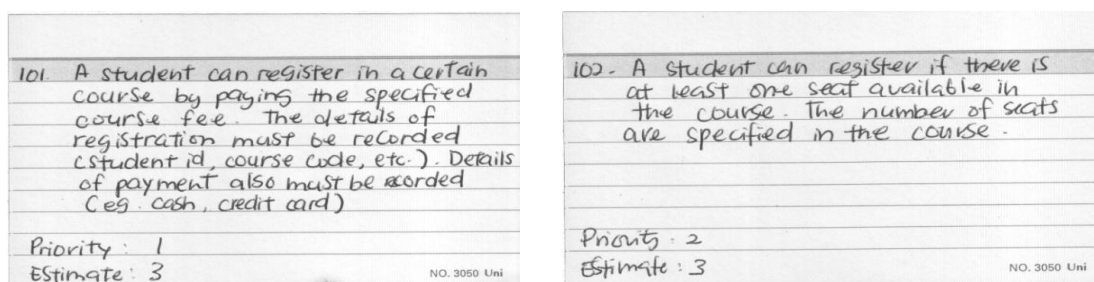 101. A student can register in a certain
course by paying the specified
course fee. The details of
registration must be recorded
(student id, course code, etc.). Details
of payment also must be recorded
(eg. cash, credit card)
Priority: 1
Estimate: 3
NO. 3050 Uni
102. A student can register if there is
at least one seat available in
the course. The number of seats
are specified in the course.
Priority: 2
Estimate: 3
NO. 3050 Uni